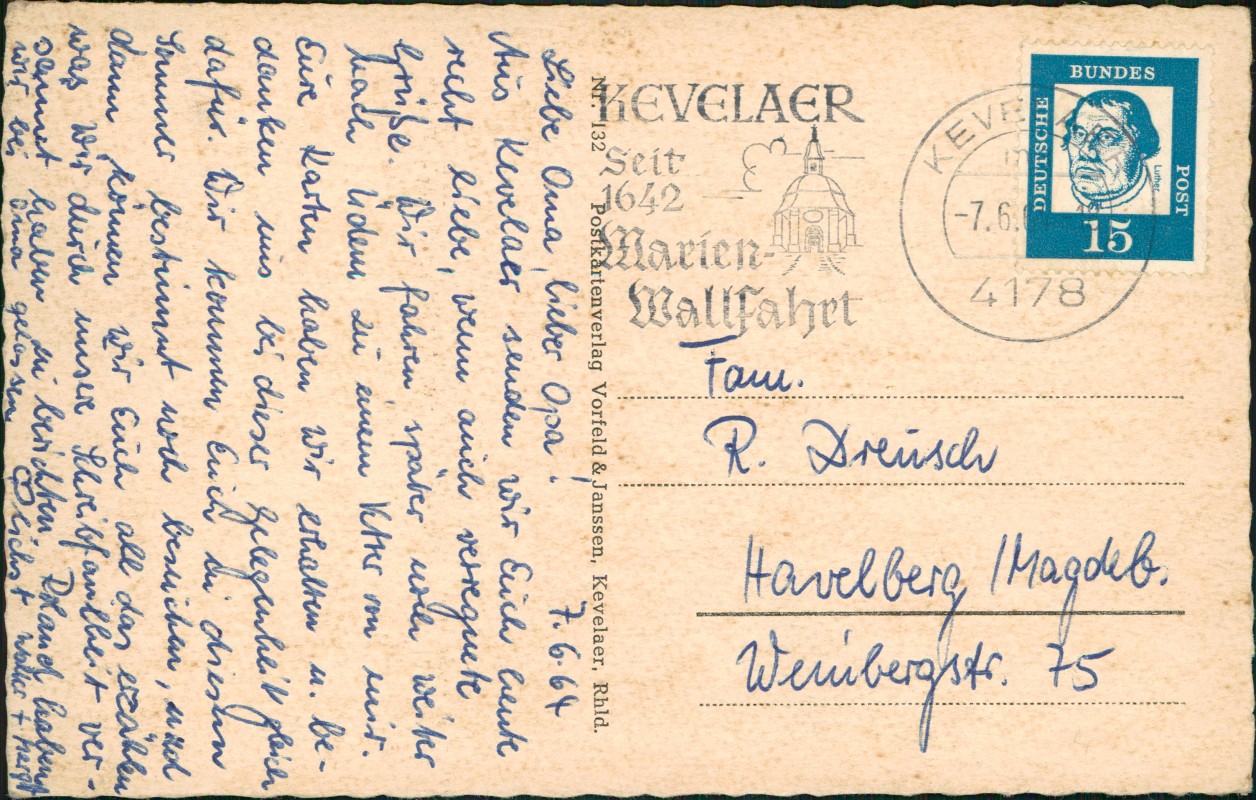 7.6.64
Liebe Oma, lieber Opa!
Aus Kevelaer senden wir Euch heute
recht liebe, wenn auch verregnete
Grüße. Wir fahren später noch weiter
nach Üdem zu einem Vetter von mir.
Eure Karten haben wir erhalten u. be-
danken uns bei dieser Gelegenheit gleich
dafür. Wir kommen Euch in diesem
Sommer bestimmt noch besuchen, und
dann können wir Euch all das erzählen
was wir durch unsere Schreibfaulheit ver-
säumt haben zu berichten. Frank haben
wir bei Oma gelassen.
Nr. 132 Postkartenverlag Vorfeld & Janssen, Kevelaer, Rhld.
KEVELAER
Seit
1642
Marien-
Wallfahrt
KEVELAER
-7.6.
4178
DEUTSCHE
BUNDES
POST
Luther
15
Fam.
R. Dreusch
Havelberg /Magdeb.
Weinbergstr. 75